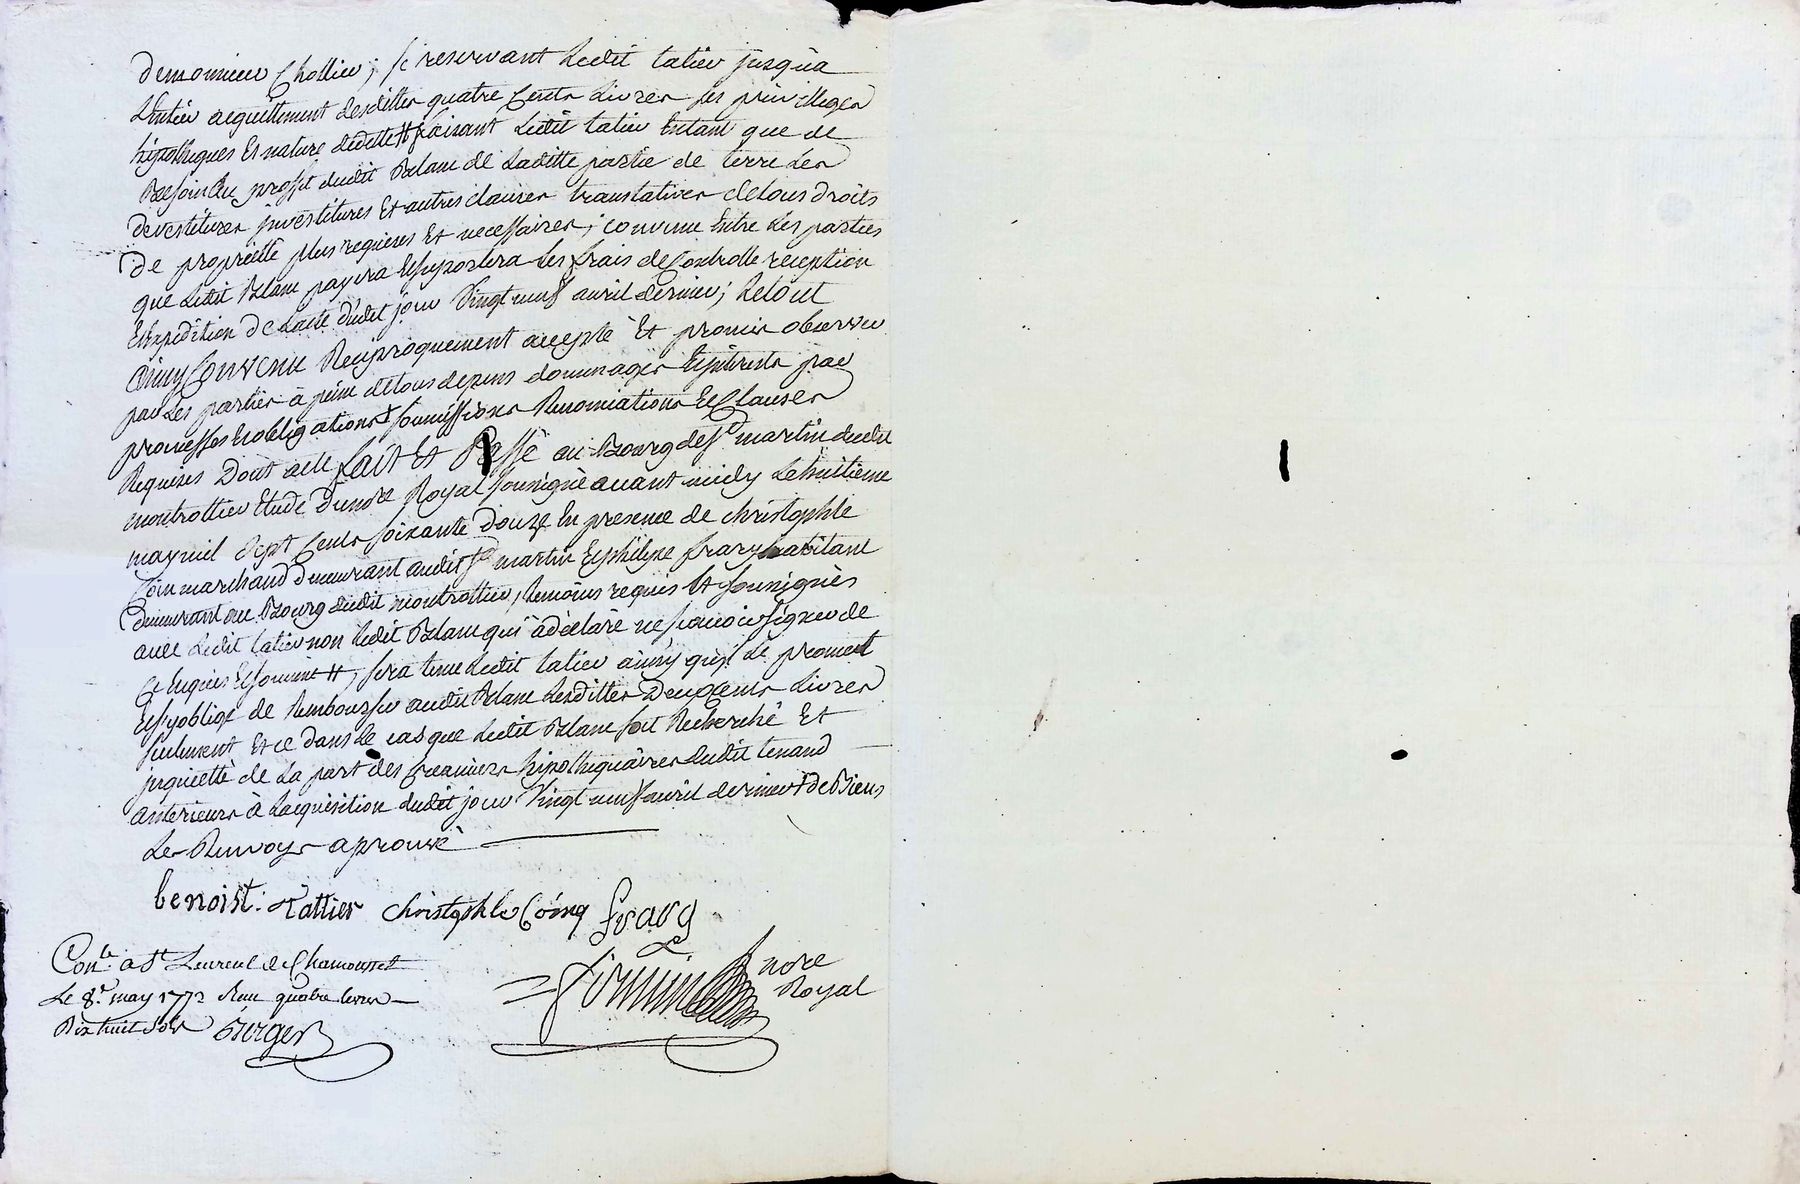 demonsieur Chollier; se reservant Ledit tatier jusqu'a
L'entier acquittement desdittes quatre Cents Livres ses privilleges
hipotheques Et nature dedette # faisant Ledit tatier Entant que de
Besoin Au proffit dudit Blanc de Laditte partie de terre Les
devestitures jnvestitures Et autres clauses translatives detous droits
de proprieté plus requises Et necessaires; convenu Entre Les parties
que Ledit Blanc payera Et suportera Les frais de Controlle reception
Et Expedition de Lacte dudit jour Vingt neuf avril dernier; Letout
ainsy Convenu Reciproquement accepté Et promis observer
par Les parties à peine detous depens dommages Et jnterests par
promesses Et obligations + soumissions Renonciations Et Clauses
Requises Dont acte fait Et Passé au Bourg de St martin dudit
montrottier Etude Du nore Royal soussigné avant midy Le huitieme
may mil sept Cents soixante douze En presence de christophle
Coin marchand demeurant audit St martin Et philipe frary habitant
demeurant au Bourg dudit montrottier, temoins requis Et soussignés
avec Ledit tatier non Ledit Blanc qui à déclaré ne scavoir signer de
Ce Enquis Et sommé #, sera tenu Ledit tatier ainsy qu'jl Le promet
Et s'y oblige de Rembourser audit Blanc Lesdittes Deux Cents Livres
seulement Et ce dans Le cas que Ledit Blanc soit Recherché Et
jnquietté de La part des Creanciers hipothequaires dudit tenand
anterieurs à L'acquisition dudit jour Vingt neuf avril dernier + de Biens
Les Renvoys aprouvé
benoist: tattier christophle Coing frary
Conlé a St Laurent de Chamousset
Le 8e may 1772 Reçu quatre livres
Dix huit sols Burger
Firmin nore
Royal